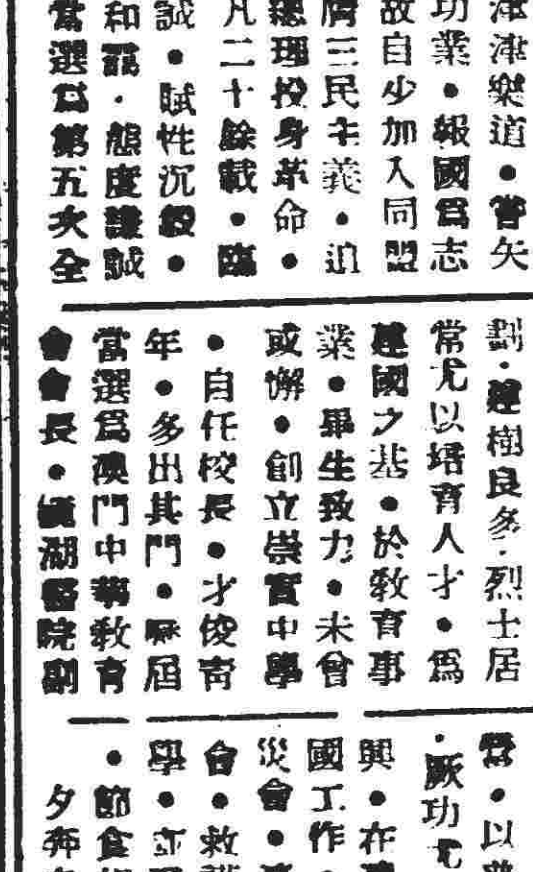 津津樂道●嘗矢
功業●報國爲志
故自少加入同盟
膺三民主義●追
總理投身革命●
凡二十餘載●臨
誠●賦性沉毅●
和靄●態度謙誠
當選爲第五次全
劃●建樹良多●烈士居
常尤以培育人才●爲
建國之基●於敎育事
業●畢生致力●未曾
或懈●創立崇實中學
●自任校長●才俊靑
年●多出其門●歷屆
當選爲澳門中華敎育
會會長●鏡湖醫院副
當●以
●厥功尤
興●在
國工作
災會●
會●救
學●立
●節食
夕奔